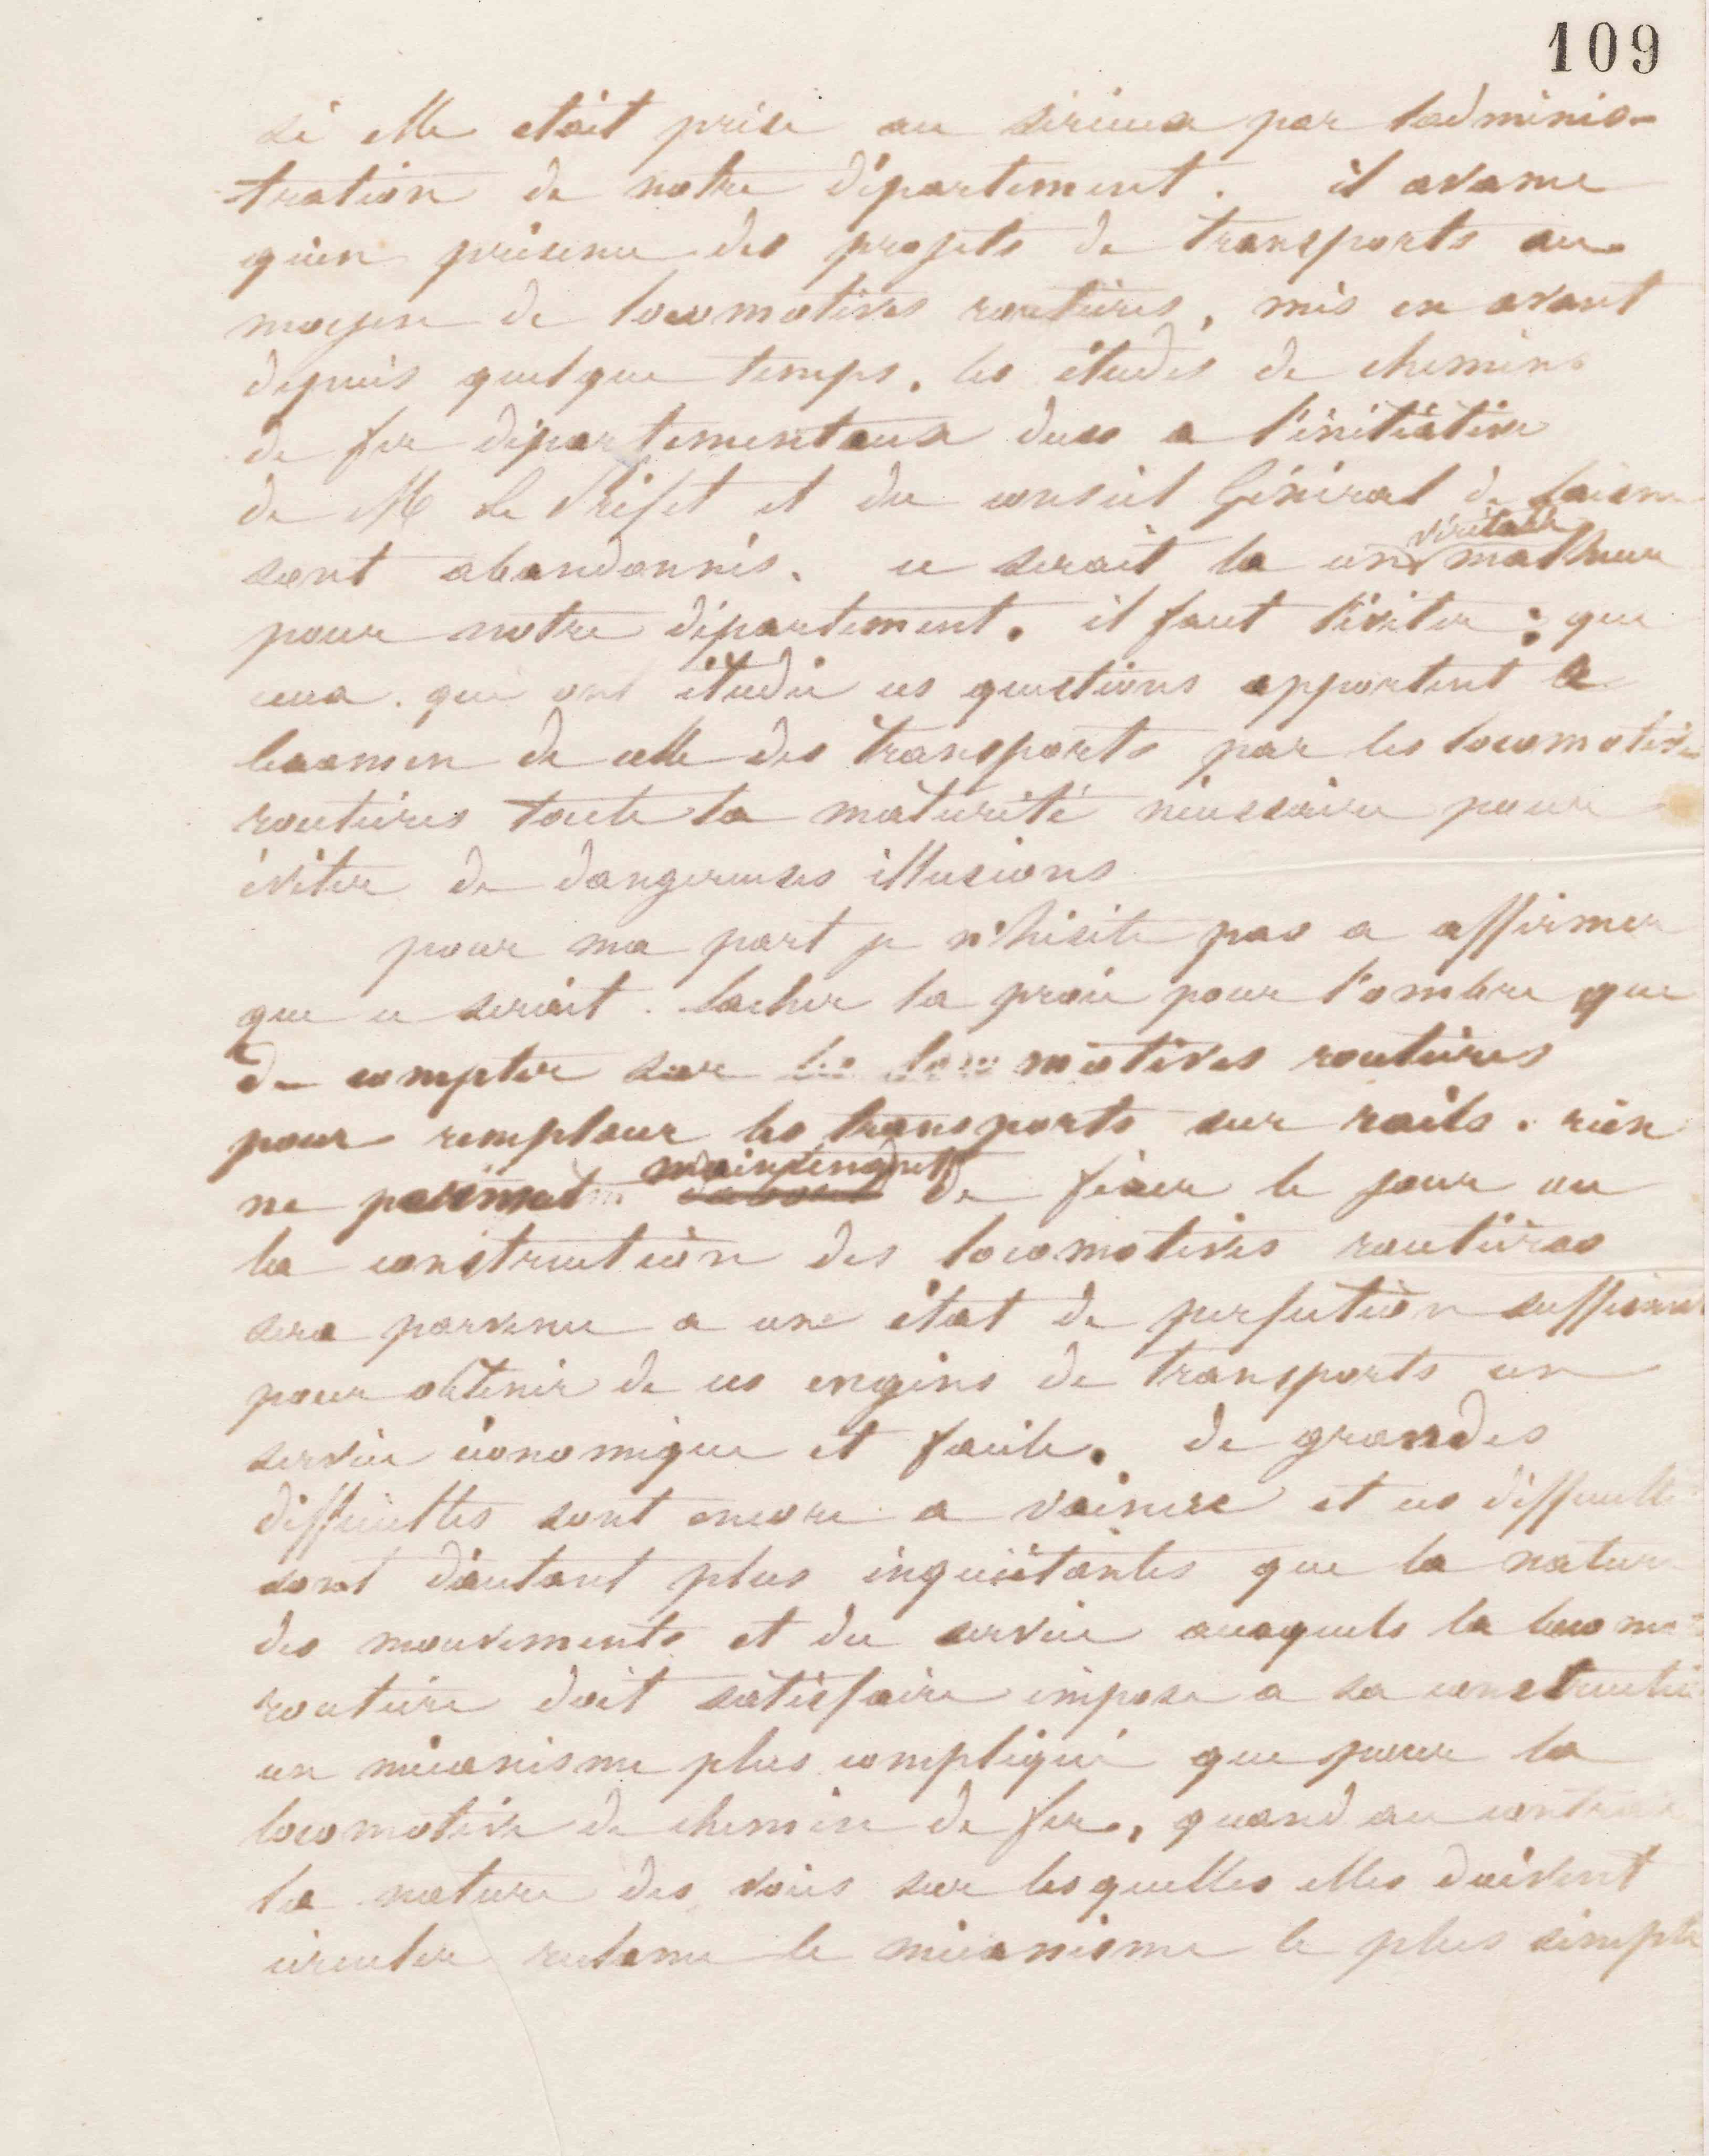 109
si elle etait prise au sérieux par ladminis-
tration de notre département. il avance
qu'en présence des projets de transports au
moyen de locomotives routières, mis en avant
depuis quelque temps, les études de chemins
de fer départementaux dues a l'initiative
de M Le Préfet et du conseil Général de laisne
sont abandonnés. ce serait la un véritable malheur
pour notre département. il faut l'éviter ; que
ceux qui ont étudié ces questions apportent a
lexamen de celle des transports par les locomotives
routières toute la maturité nécessaire pour
éviter de dangereuses illusions
pour ma part je n'hésite pas a affirmer
que ce serait lacher la proie pour l'ombre que
de compter sur les locomotives routières
pour remplacer les transports sur rails. rien
ne permet maintenant de fixer le jour ou
la construction des locomotives routières
sera parvenue a une état de perfection suffisant
pour obtenir de ces engins de transports un
service économique et facile. de grandes
difficultés sont encore a vaincre et ces difficultés
sont d'autant plus inquiétantes que la nature
des mouvements et du service auxquels la locomo
routière doit satisfaire impose a sa construction
un mécanisme plus compliqué que pour la
locomotive de chemin de fer, quand au contraire
la nature des voies sur lesquelles elles doivent
circuler reclame le mécanisme le plus simple